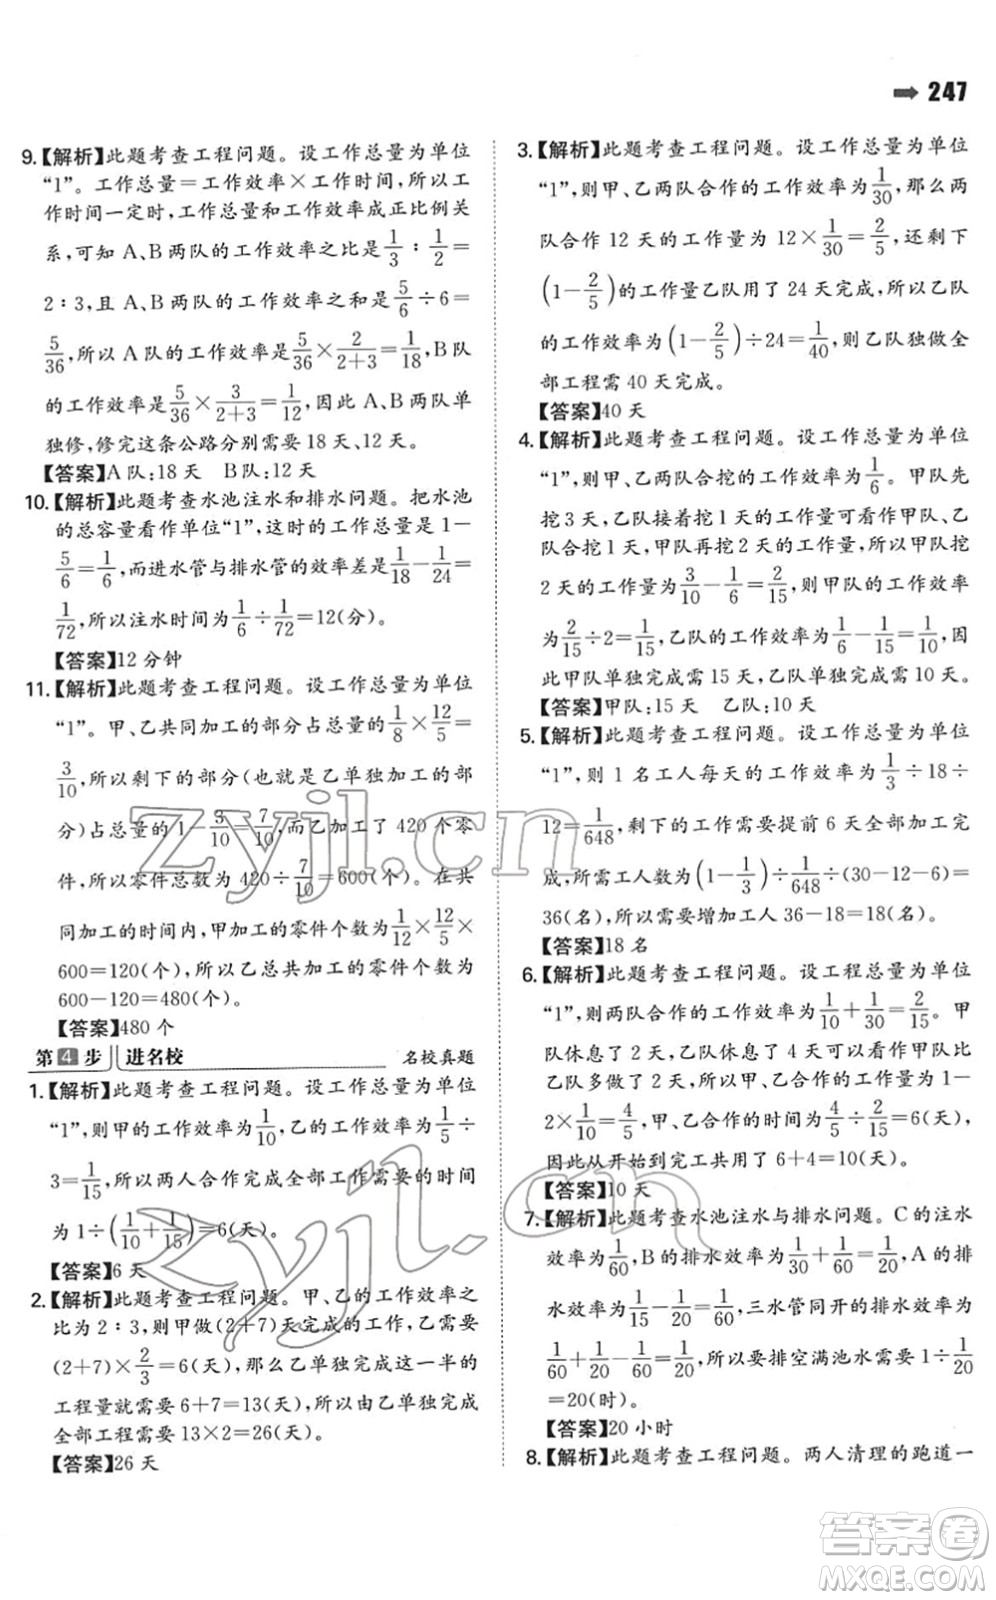 ➡ 247
9.【解析】此题考查工程问题。设工作总量为单位
“1”。工作总量＝工作效率×工作时间，所以工
作时间一定时，工作总量和工作效率成正比例关
系，可知 A、B 两队的工作效率之比是 1/3 ∶ 1/2 ＝
2∶3，且 A、B 两队的工作效率之和是 5/6 ÷6＝
5/36，所以 A 队的工作效率是 5/36 × 2/(2+3) ＝ 1/18，B 队
的工作效率是 5/36 × 3/(2+3) ＝ 1/12，因此 A、B 两队单
独修，修完这条公路分别需要 18 天、12 天。
【答案】A 队：18 天 B 队：12 天
10.【解析】此题考查水池注水和排水问题。把水池
的总容量看作单位“1”，这时的工作总量是 1－
5/6 ＝ 1/6，而进水管与排水管的效率差是 1/18 － 1/24 ＝
1/72，所以注水时间为 1/6 ÷ 1/72 ＝12（分）。
【答案】12 分钟
11.【解析】此题考查工程问题。设工作总量为单位
“1”。甲、乙共同加工的部分占总量的 1/8 × 12/5 ＝
3/10，所以剩下的部分（也就是乙单独加工的部
分）占总量的 1－ 3/10 ＝ 7/10，而乙加工了 420 个零
件，所以总量为 420÷ 7/10 ＝600（个）。在共
同加工的时间内，甲加工的零件个数为 1/12 × 12/5 ×
600＝120（个），所以乙总共加工的零件个数为
600－120＝480（个）。
【答案】480 个
第4步 进名校 名校真题
1.【解析】此题考查工程问题。设工作总量为单位
“1”，则甲的工作效率为 1/10，乙的工作效率为 1/5 ÷
3＝ 1/15，所以两人合作完成全部工作需要的时间
为 1÷（1/10 ＋ 1/15）＝6（天）。
【答案】6 天
2.【解析】此题考查工程问题。甲、乙的工作效率之
比为 2∶3，则甲做（2＋7）天完成的工作，乙需要
（2＋7）× 2/3 ＝6（天），那么乙单独完成这一半的
工程量就需要 6＋7＝13（天），所以乙单独完成
全部工程需要 13×2＝26（天）。
【答案】26 天
3.【解析】此题考查工程问题。设工作总量为单位
“1”，则甲、乙两队合作的工作效率为 1/30，那么两
队合作 12 天的工作量为 12× 1/30 ＝ 2/5，还剩下
（1－ 2/5）的工作量乙队用了 24 天完成，所以乙队
的工作效率为（1－ 2/5）÷24＝ 1/40，即乙队单独做全
部工程需 40 天完成。
【答案】40 天
4.【解析】此题考查工程问题。设工作总量为单位
“1”，则甲、乙两队合挖的工作效率为 1/6。甲队先
挖 3 天，乙队接着挖 1 天的工作量可看作甲队、乙
队合挖 1 天，甲队再挖 2 天的工作量，所以甲队挖
2 天的工作量为 3/10 － 1/6 ＝ 2/15，即甲队的工作效率
为 2/15 ÷2＝ 1/15，乙队的工作效率为 1/6 － 1/15 ＝ 1/10，因
此甲队单独完成需 15 天，乙队单独完成需 10 天。
【答案】甲队：15 天 乙队：10 天
5.【解析】此题考查工程问题。设工作总量为单位
“1”，则 1 名工人每天的工作效率为 1/3 ÷18÷
12＝ 1/648，剩下的工作需要提前 6 天全部加工完
成，所需工人数为（1－ 1/3）÷ 1/648 ÷(30－12－6)＝
36（名），所以需要增加工人 36－18＝18（名）。
【答案】18 名
6.【解析】此题考查工程问题。设工程总量为单位
“1”，则两队合作的工作效率为 1/10 ＋ 1/30 ＝ 2/15。甲
队休息了 2 天，乙队休息了 8 天，所以看作甲队比
乙队多做了 2 天，这 2 天完成后剩余的工作量为 1－
2× 1/10 ＝ 4/5，甲、乙合作的时间为 4/5 ÷ 2/15 ＝6（天），
因此从开始到完工共用了 6＋4＝10（天）。
【答案】10 天
7.【解析】此题考查水池注水与排水问题。C 的注水
效率为 1/60，B 的排水效率为 1/30 ＋ 1/60 ＝ 1/20，A 的排
水效率为 1/15 － 1/20 ＝ 1/60，三水管同开的排水效率为
1/60 ＋ 1/20 － 1/60 ＝ 1/20，所以要排空满池水需 1÷ 1/20
＝20（时）。
【答案】20 小时
8.【解析】此题考查工程问题。两人清理的跑道一
zyjl.cn
zyjl.cn
答案圈
MXQE.COM